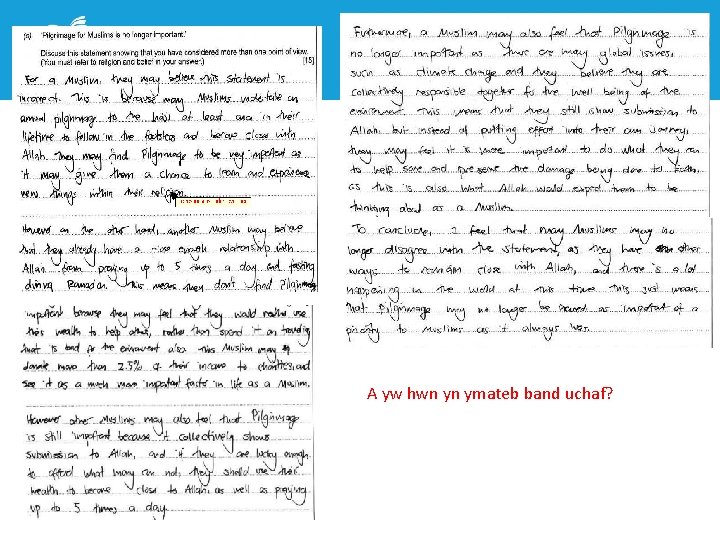 (c) 'Pilgrimage for Muslims is no longer important.'
Discuss this statement showing that you have considered more than one point of view.
(You must refer to religion and belief in your answer.) [15]
For a Muslim, they may believe this statement is
incorrect. This is because many Muslims undertake an
annual pilgrimage to the hajj at least once in their
lifetime to follow in the footsteps and become close with
Allah. They may find Pilgrimage to be very important as
it may give them a chance to learn and experience
new things within their religion.
However on the other hand, another Muslim may believe
that they already have a close enough relationship with
Allah from praying up to 5 times a day and fasting
during Ramadan. This means they don't find Pilgrimage
important because they may feel that they would rather use
their wealth to help others, rather than spend it on travelling
that is bad for the environment also. This Muslim may
donate more than 2.5% of their income to charities, and
see it as a much more important factor in life as a Muslim.
However other Muslims may also feel that Pilgrimage
is still important because it collectively shows
submission to Allah, and if they are lucky enough
to afford what many can not, they should use their
wealth to become close to Allah, as well as praying
up to 5 times a day.
Furthermore, a Muslim may also feel that Pilgrimage is
no longer important as there are many global issues,
such as climate change and they believe they are
collectively responsible together for the well being of the
environment. This means that they still show submission to
Allah, but instead of putting effort into their own journey,
they may feel it is more important to do what they can
to help save and preserve the damage being done to Earth,
as this is also what Allah would expect them to be
thinking about as a Muslim.
To conclude, I feel that many Muslims may no
longer disagree with the statement, as they have other
ways to remain close with Allah, and there is a lot
happening in the world at this time this just means
that Pilgrimage may no longer be viewed as important of a
priority to Muslims as it always was.
A yw hwn yn ymateb band uchaf?